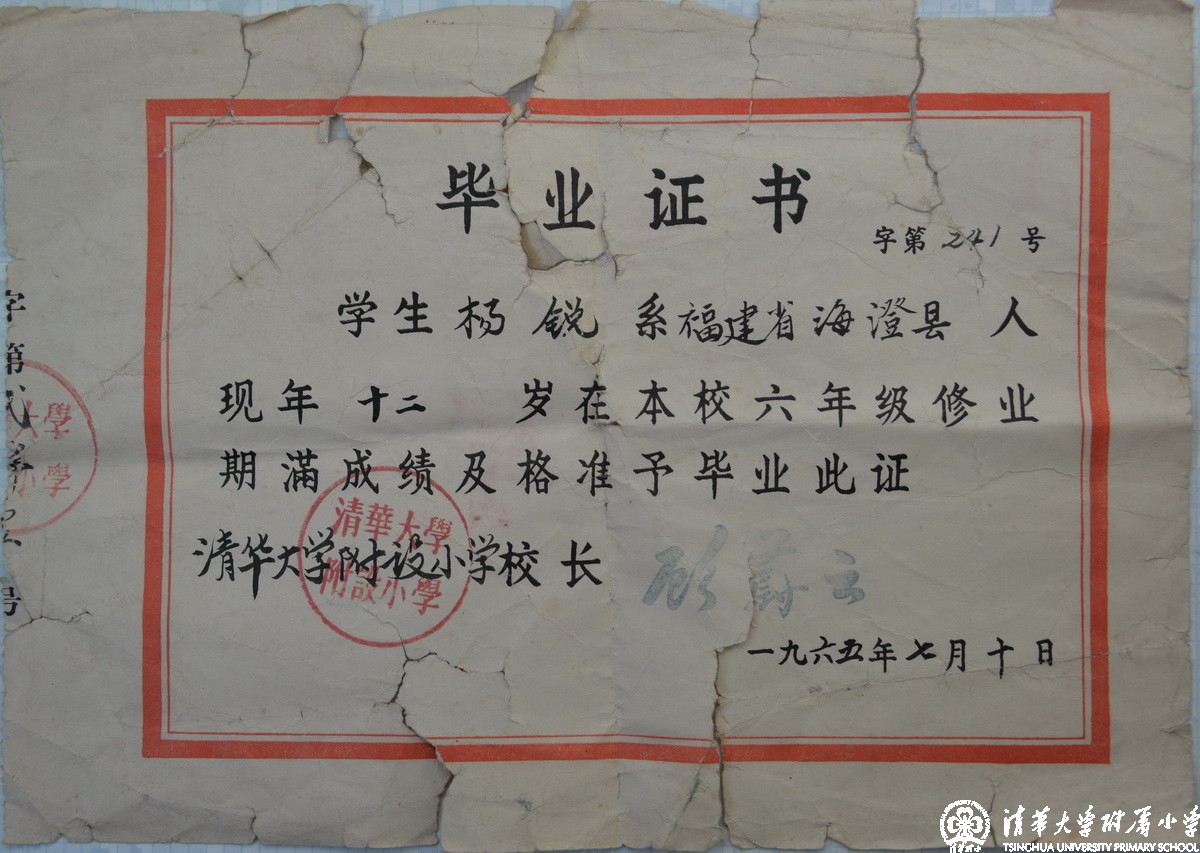 毕业证书
字第241号
学生杨锐系福建省海澄县人
现年十二岁在本校六年级修业
期满成绩及格准予毕业此证
清华大学附设小学校长 顾蔚云
一九六五年七月十日
清華大學
附設小學
字第贰
号
清华大学附属小学
TSINGHUA UNIVERSITY PRIMARY SCHOOL